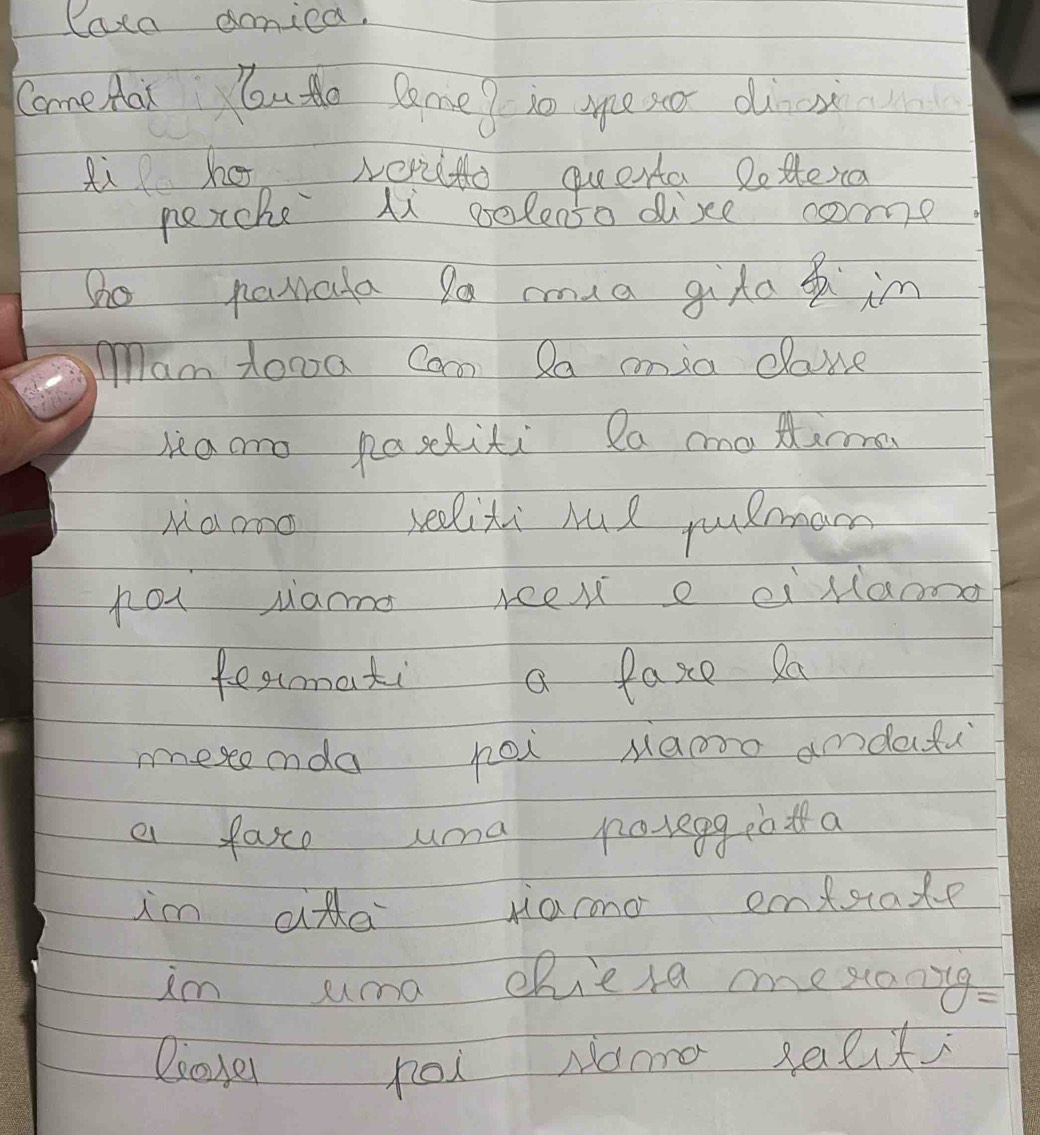 Cara amica.
Come stai Tutto bene? io spero di si
ti ho scritto questa lettera
perché ti volevo dire come
ho passata la mia gita in
Mantova con la mia classe
siamo partiti la mattina
siamo saliti sul pulman
poi siamo scesi e ci siamo
fermati a fare la
merenda poi siamo andati
a fare una poseggiatta
in città siamo entrate
in una chiesa meravig=
liosa poi siamo saliti